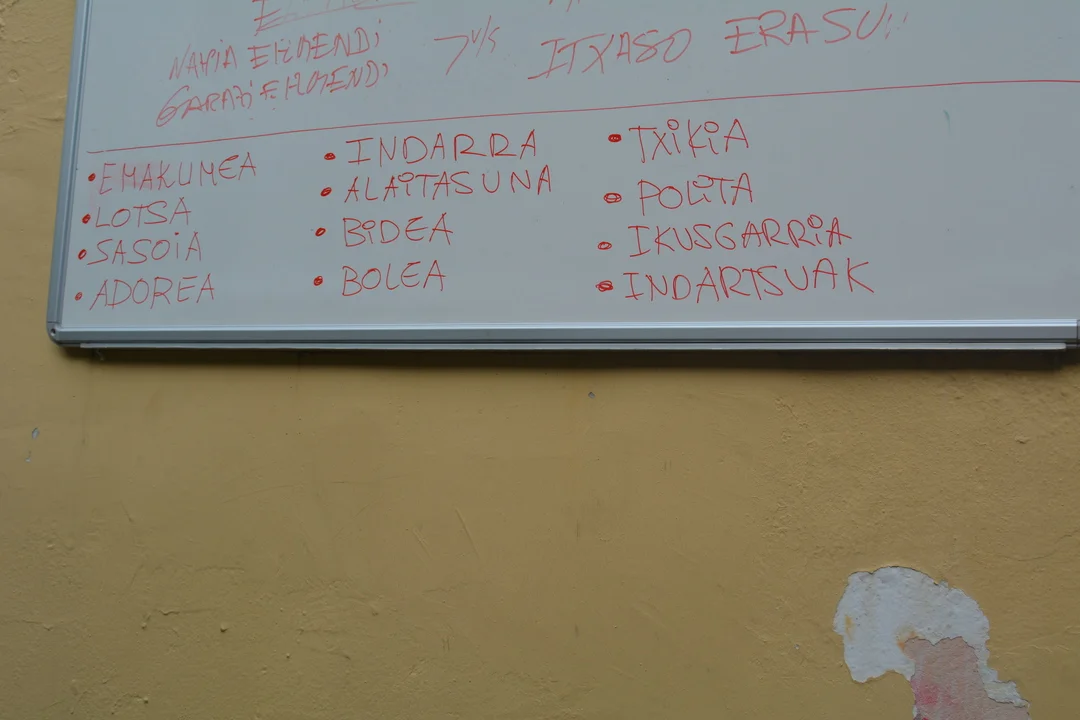 NAHIA ELIZMENDI
GARAZI ELIZMENDI
7 v/s
ITXASO ERASU!!
• EMAKUMEA
• LOTSA
• SASOIA
• ADOREA
• INDARRA
• ALAITASUNA
• BIDEA
• BOLEA
• TXIKIA
• POLITA
• IKUSGARRIA
• INDARTSUAK